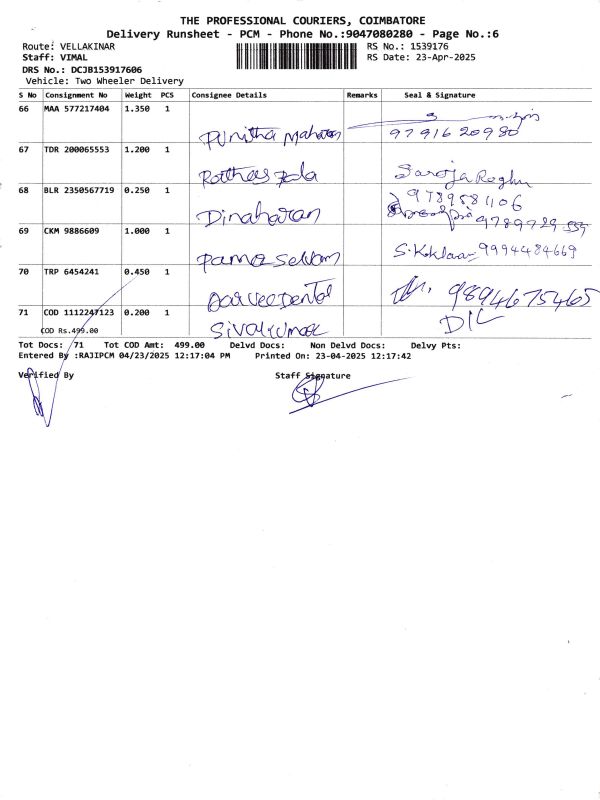 THE PROFESSIONAL COURIERS, COIMBATORE
Delivery Runsheet - PCM - Phone No.:9047080280 - Page No.:6
Route: VELLAKINAR RS No.: 1539176
Staff: VIMAL RS Date: 23-Apr-2025
DRS No.: DCJB153917606
Vehicle: Two Wheeler Delivery
S No Consignment No Weight PCS Consignee Details Remarks Seal & Signature
66 MAA 577217404 1.350 1
Punitha 9791620980
67 TDR 200065553 1.200 1
Saroja Reghu
68 BLR 2350567719 0.250 1 9789581106
Dinaharan 9789729
69 CKM 9886609 1.000 1
Pama Selvam 9994484669
70 TRP 6454241 0.450 1
Dental 9894675465
71 COD 1112247123 0.200 1 D/L
COD Rs.499.00 Sivakumar
Tot Docs: 71 Tot COD Amt: 499.00 Delvd Docs: Non Delvd Docs: Delvy Pts:
Entered By :RAJIPCM 04/23/2025 12:17:04 PM Printed On: 23-04-2025 12:17:42
Verified By Staff Signature